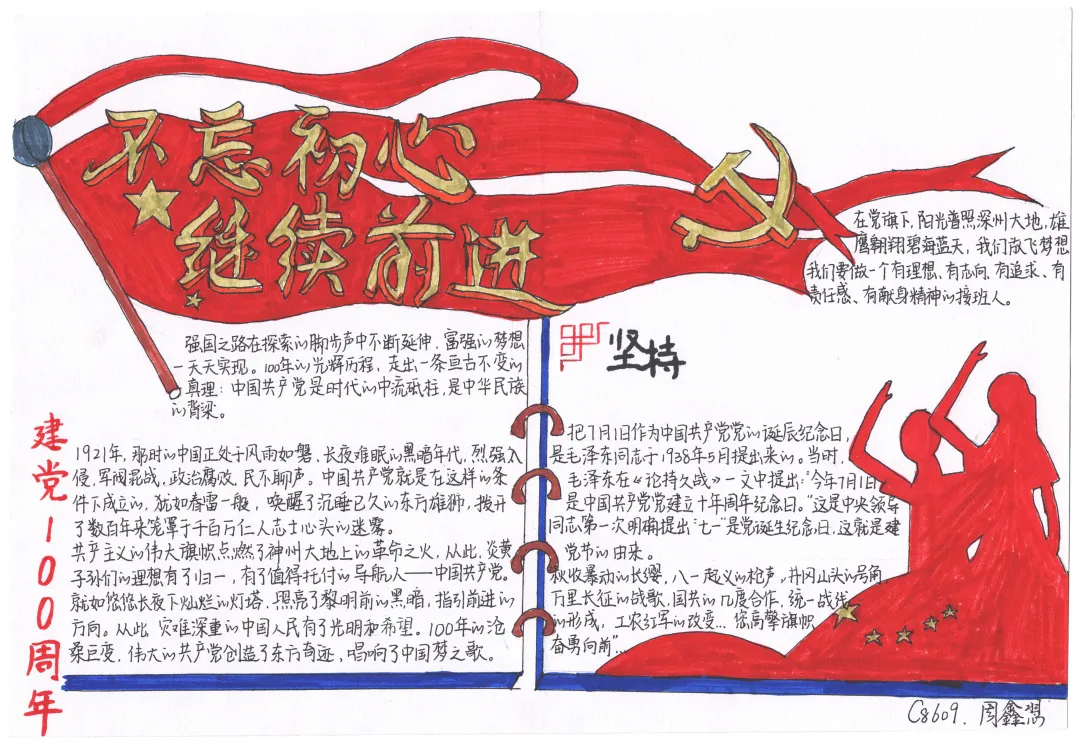 不忘初心
继续前进
在党旗下,阳光普照深州大地,雄
鹰翱翔碧海蓝天,我们放飞梦想
我们要做一个有理想、有志向、有追求、有
责任感、有献身精神的接班人。
强国之路在探索的脚步声中不断延伸,富强的梦想
一天天实现。100年的光辉历程,走出一条亘古不变的
真理:中国共产党是时代的中流砥柱,是中华民族
的脊梁。
建党100周年
1921年,那时的中国正处于风雨如磐、长夜难眠的黑暗年代,烈强入
侵,军阀混战,政治腐败,民不聊声。中国共产党就是在这样的条
件下成立的,犹如春雷一般,唤醒了沉睡已久的东方雄狮,拨开
了数百年来笼罩于千百万仁人志士心头的迷雾。
共产主义的伟大旗帜点燃了神州大地上的革命之火,从此,炎黄
子孙们的理想有了归一,有了值得托付的导航人——中国共产党。
就如悠悠长夜下灿烂的灯塔,照亮了黎明前的黑暗,指引前进的
方向。从此,灾难深重的中国人民有了光明和希望。100年的沧
桑巨变,伟大的共产党创造了东方奇迹,唱响了中国梦之歌。
坚持
把7月1日作为中国共产党党的诞辰纪念日,
是毛泽东同志于1938年5月提出来的。当时,
毛泽东在《论持久战》一文中提出:"今年7月1日
是中国共产党党建立十年周年纪念日。"这是中央领导
同志第一次明确提出"七一"是党诞生纪念日,这就是建
党节的由来。
秋收暴动的长缨,八一起义的枪声,井冈山头的号角
万里长征的战歌,国共的几度合作,统一战线
的形成,工农红军的改变…您高擎旗帜
奋勇向前"…
C8609.周鑫